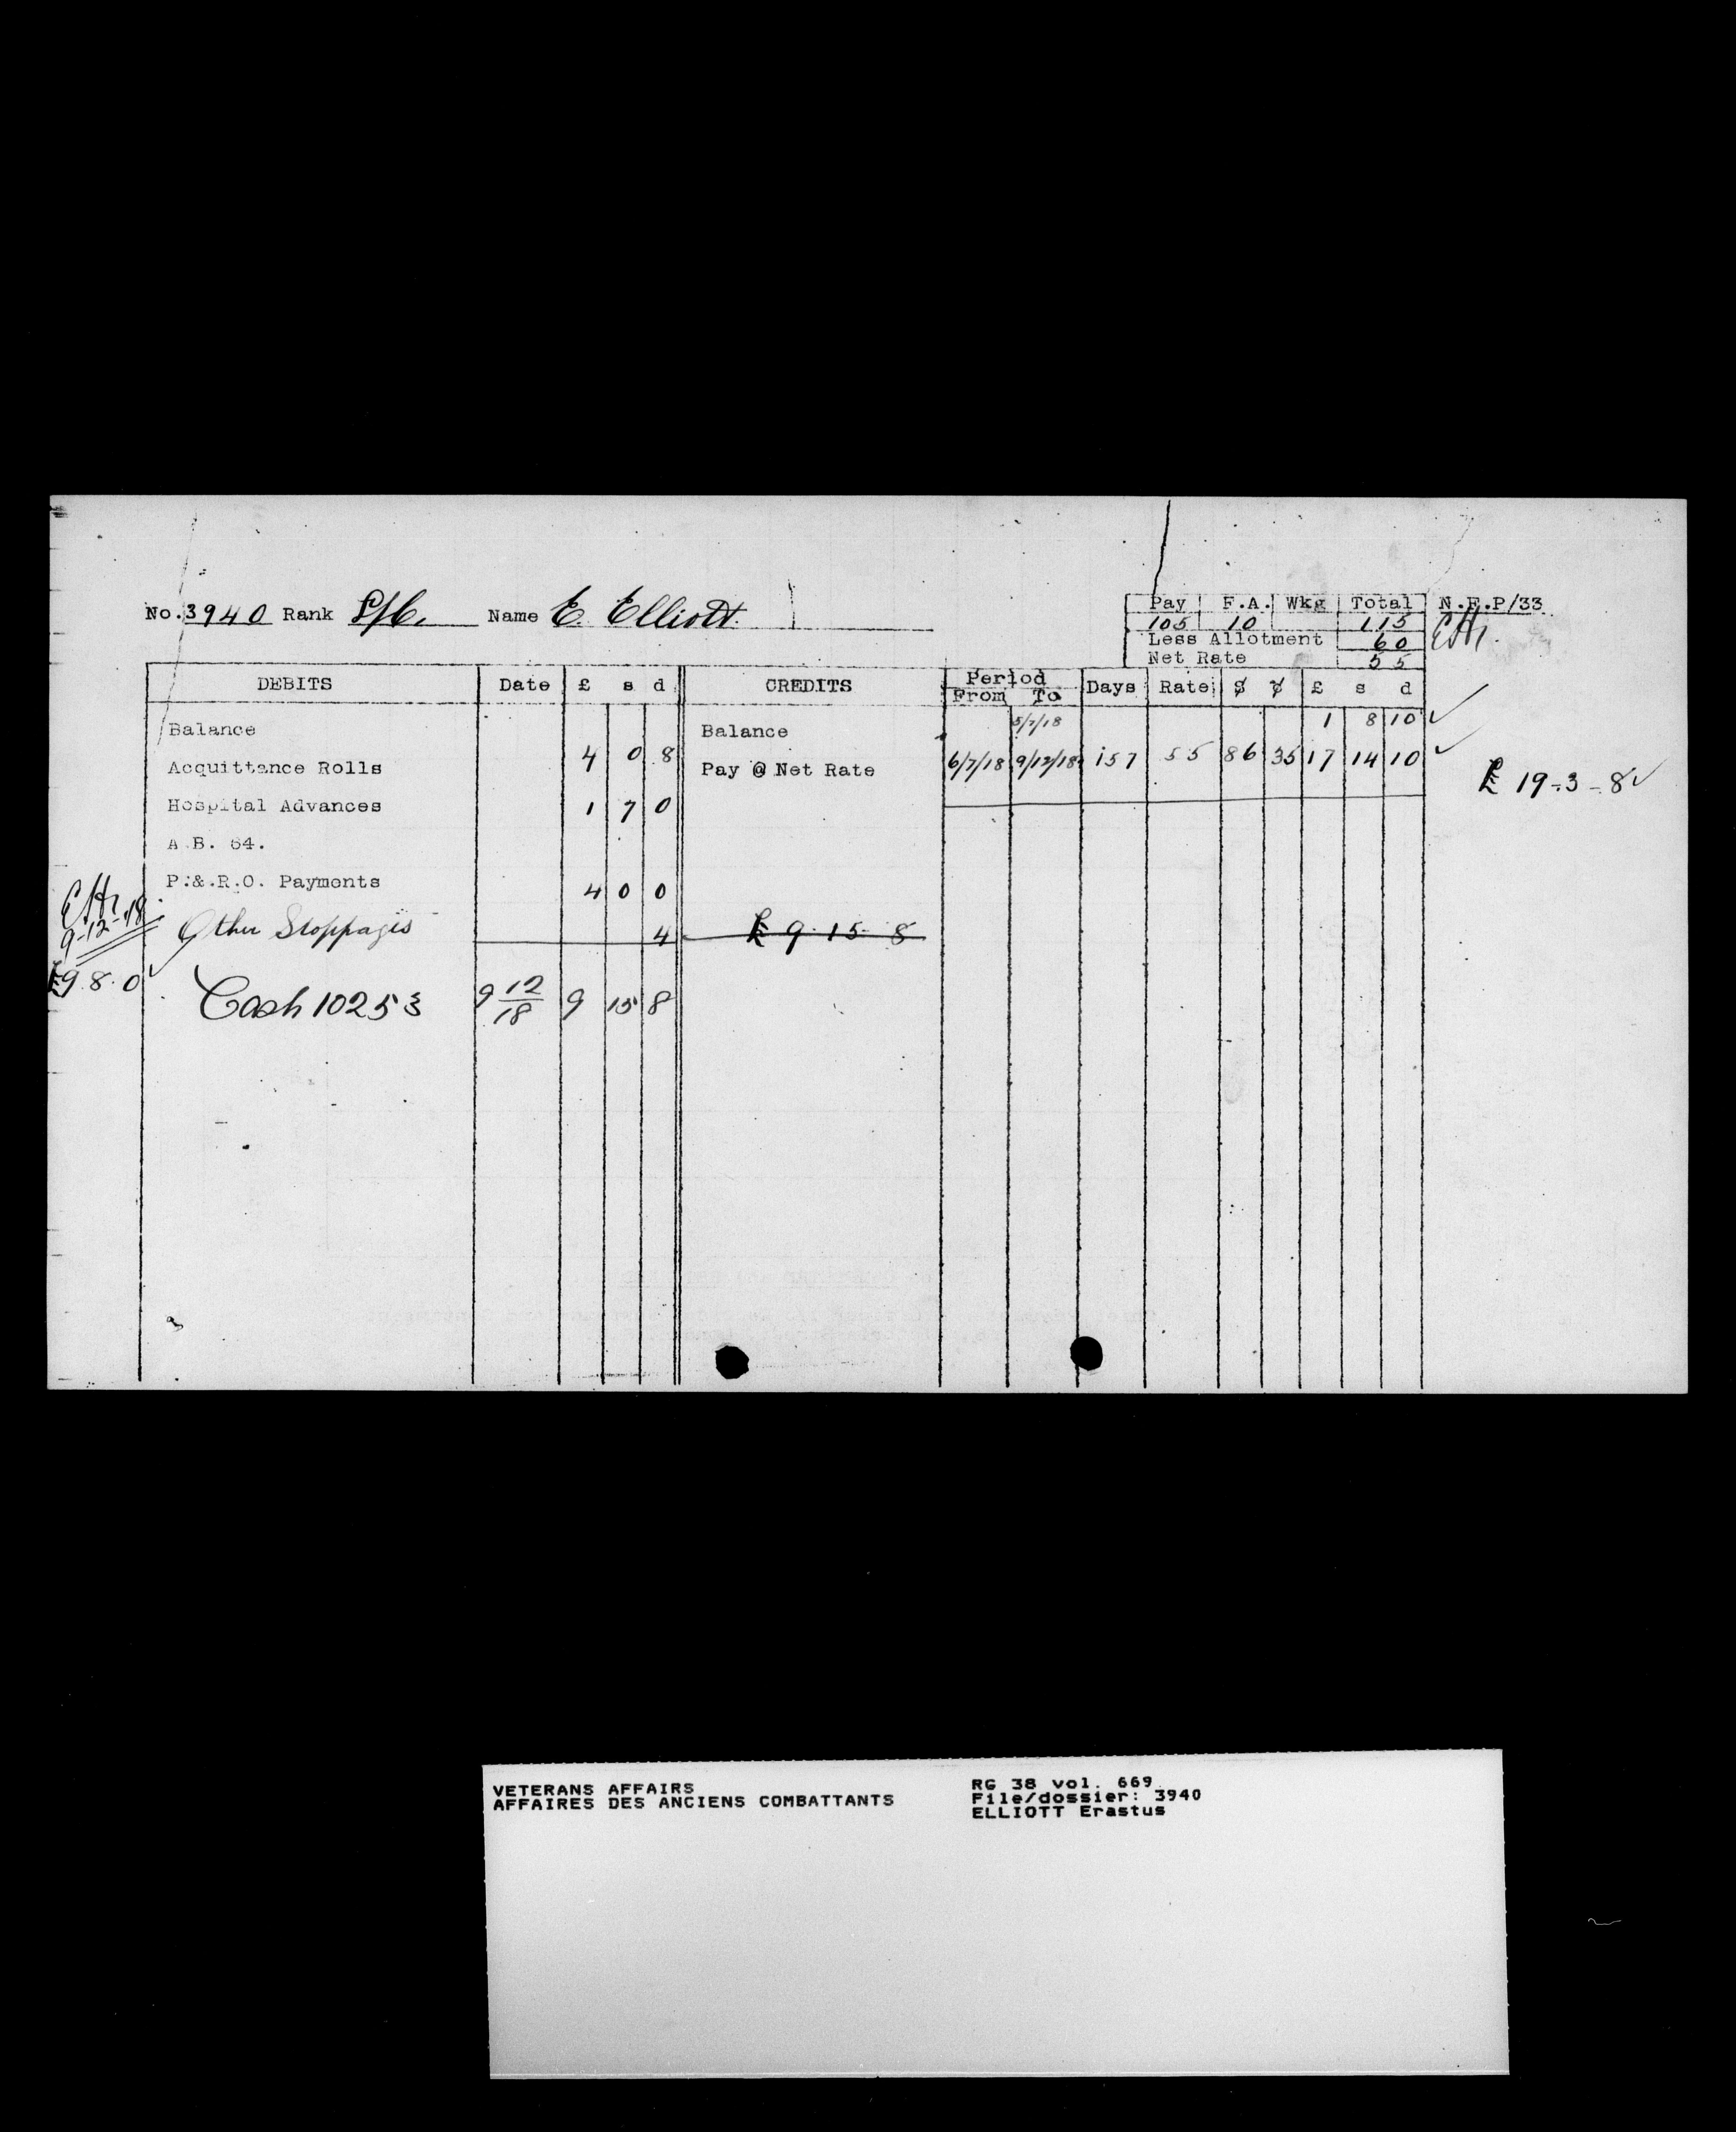 No. 3940 Rank L/C. Name E. Elliott.
Pay F.A. Wkg Total N.F.P/33
105 10 115
Less Allotment 60
Net Rate 55
DEBITS Date £ s d CREDITS Period From To Days Rate $ ¢ £ s d
Balance Balance 5/7/18 1 8 10
Acquittance Rolls 4 0 8 Pay @ Net Rate 6/7/18 9/12/18 157 55 86 35 17 14 10
£ 19-3-8
Hospital Advances 1 7 0
A.B. 64.
P.&.R.O. Payments 4 0 0
9-12-18
Other Stoppages 4 £ 9 15 8
£9.8.0
Cash 10253 9 12/18 9 15 8
VETERANS AFFAIRS
AFFAIRES DES ANCIENS COMBATTANTS
RG 38 vol. 669
File/dossier: 3940
ELLIOTT Erastus